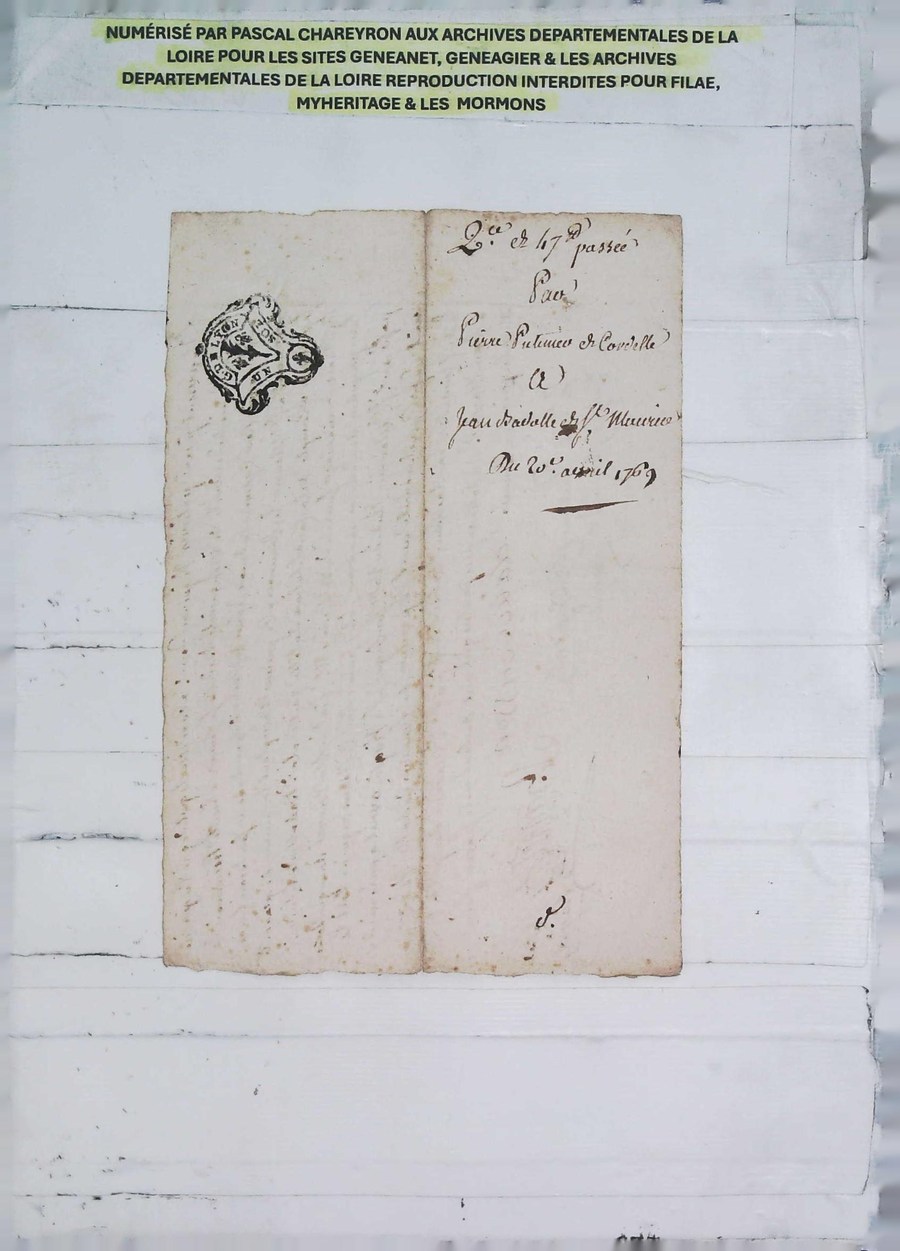 NUMÉRISÉ PAR PASCAL CHAREYRON AUX ARCHIVES DEPARTEMENTALES DE LA
LOIRE POUR LES SITES GENEANET, GENEAGIER & LES ARCHIVES
DEPARTEMENTALES DE LA LOIRE REPRODUCTION INTERDITES POUR FILAE,
MYHERITAGE & LES MORMONS
G. DE LYON
UN SOL
2.ce de 47 passée
Par
Pierre de Cordelle
A
Jean de St Maurice
Du 20e. avril 1769